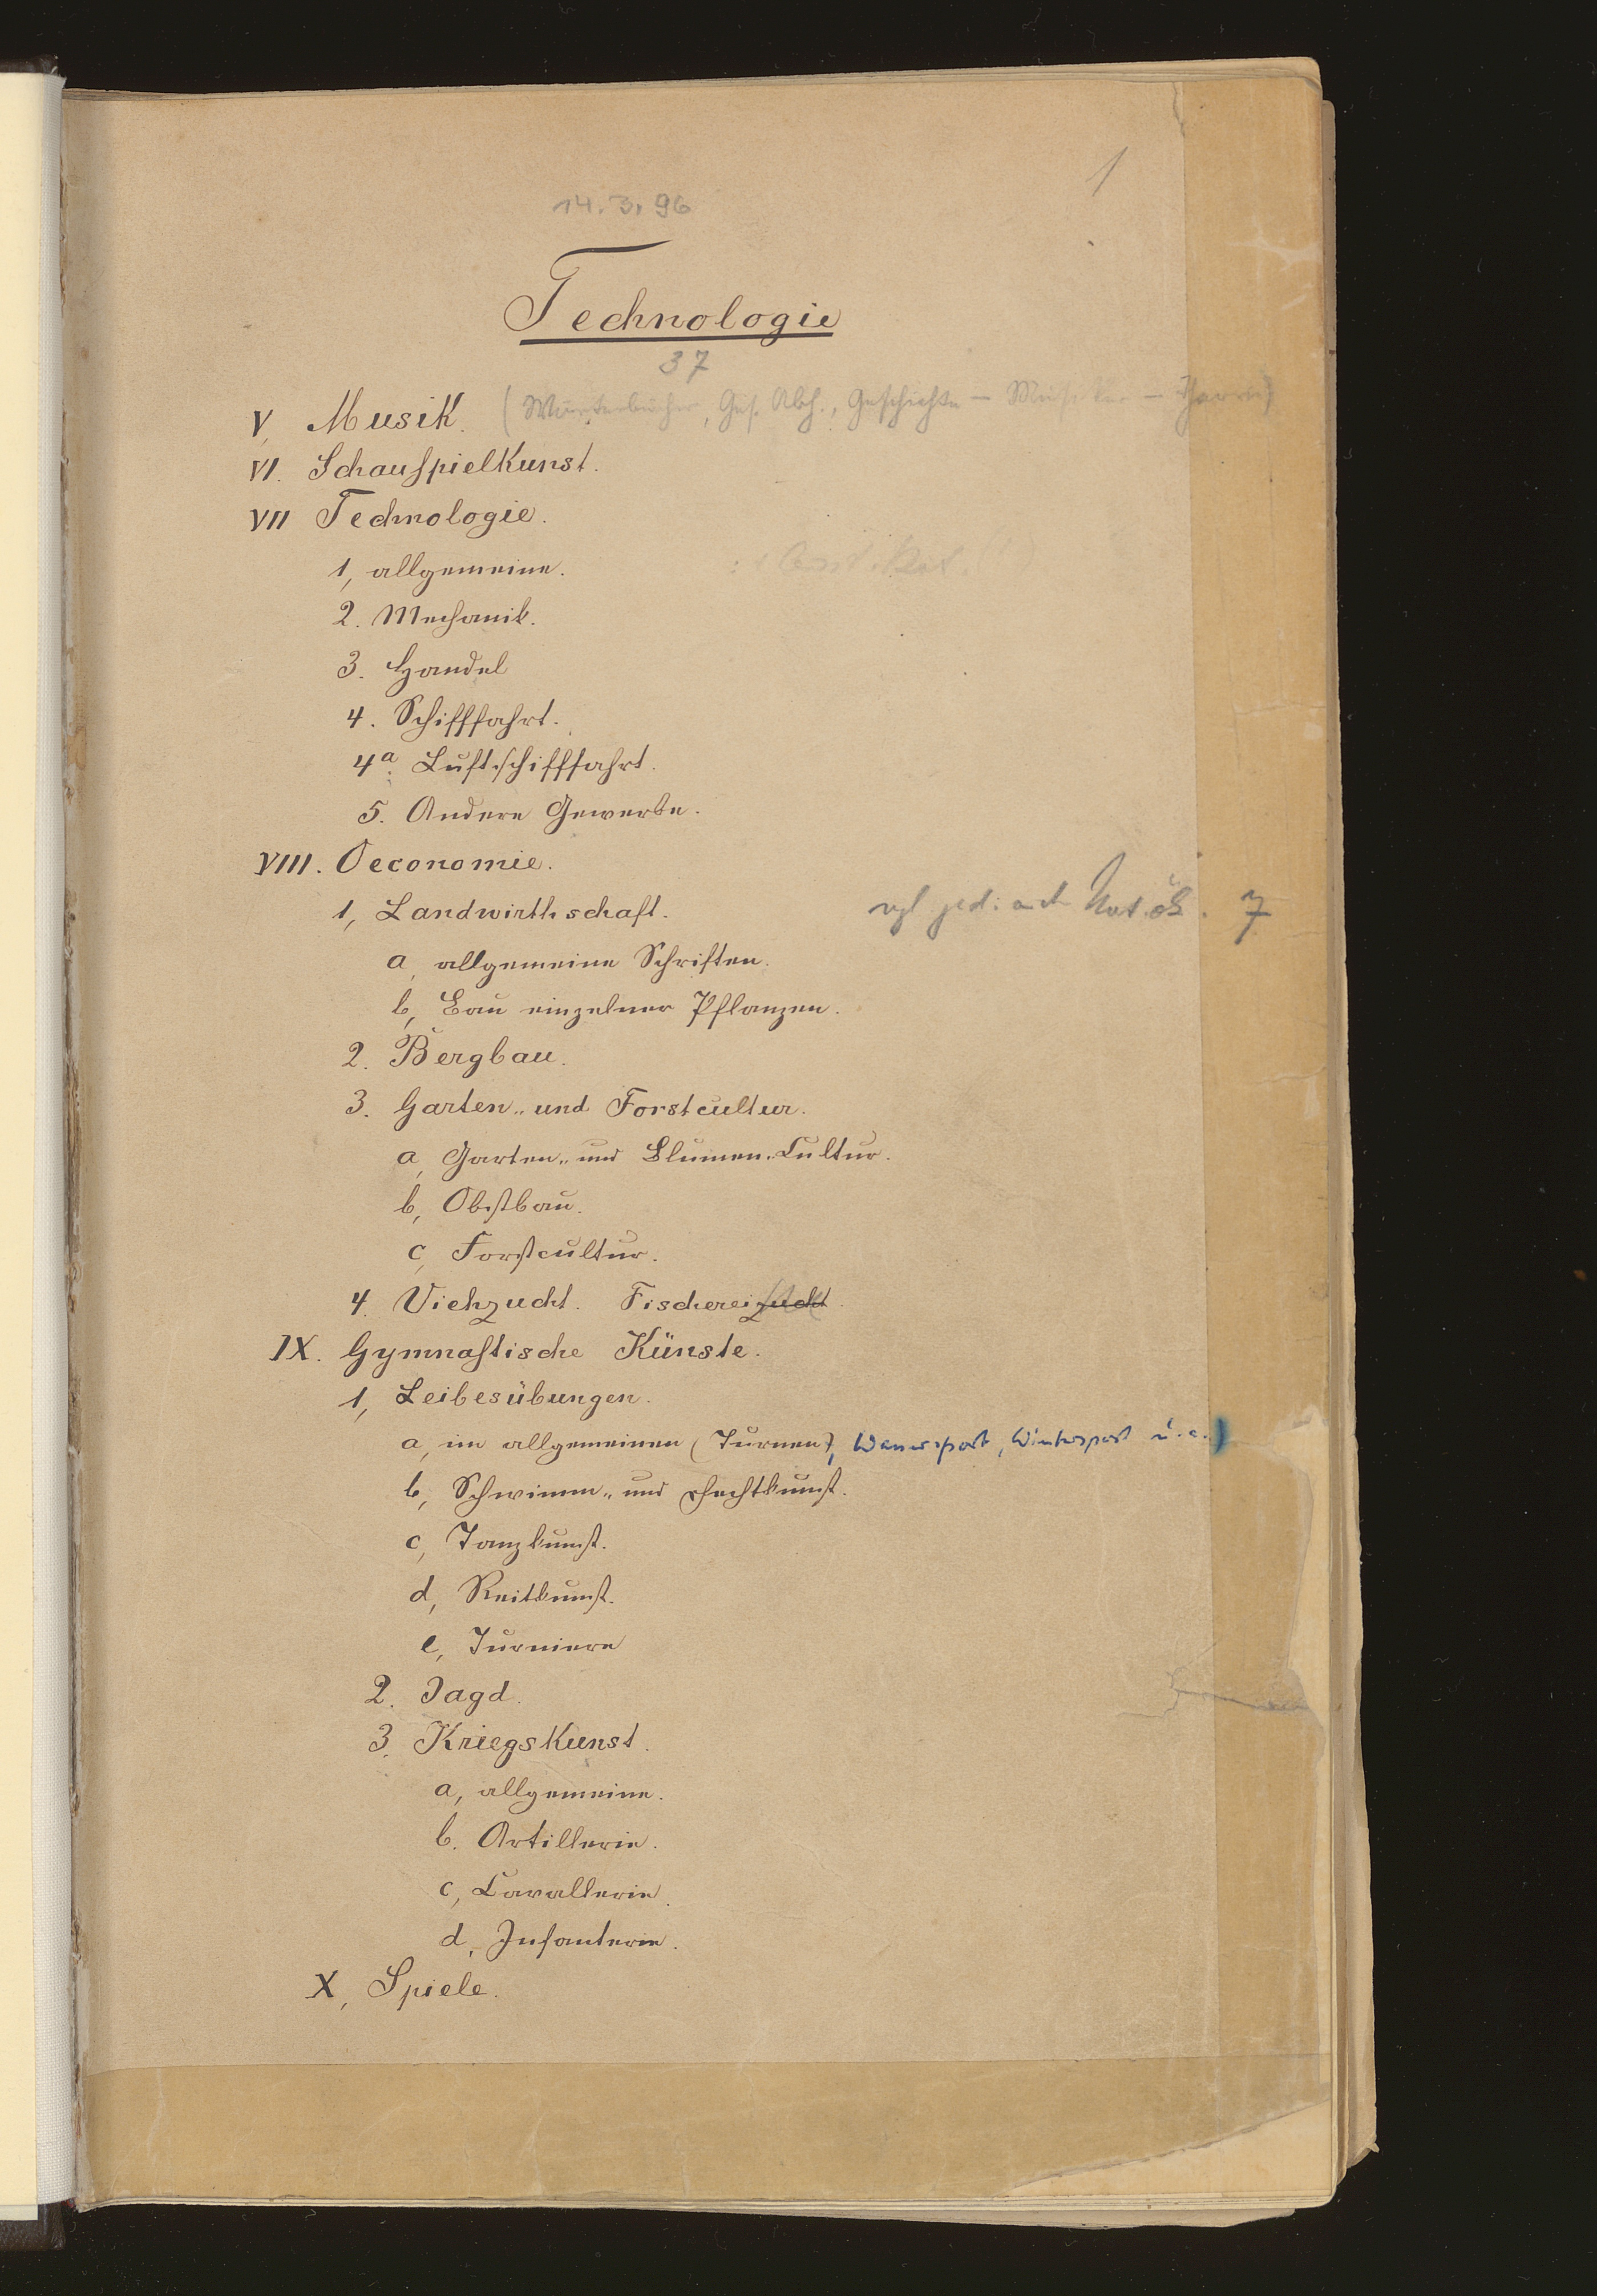 1
14.3.96
Technologie
37
V, Musik. (Wörterbücher, Ges. Abh., Geschichte – Musiker – Theorie)
VI. Schauspielkunst.
VII Technologie.
1, allgemeine.
2. Mechanik.
3. Handel
4. Schifffahrt.
4a. Luftschifffahrt.
5. Andere Gewerbe.
VIII. Oeconomie.
1, Landwirthschaft. vgl
a, allgemeine Schriften.
b, Bau einzelner Pflanzen.
2. Bergbau.
3. Garten- und Forstcultur.
a, Garten- und Blumen-Cultur.
b, Obstbau.
c, Forstcultur.
4. Viehzucht. Fischereizucht.
IX. Gymnastische Künste.
1, Leibesübungen.
a, im allgemeinen (Turnen), Wassersport, Wintersport u. a.)
b, Schwimm- und Fechtkunst.
c, Tanzkunst.
d, Reitkunst.
e, Turniere
2. Jagd.
3. Kriegskunst.
a, allgemeine.
b. Artillerie.
c, Cavallerie.
d, Infanterie.
X, Spiele.